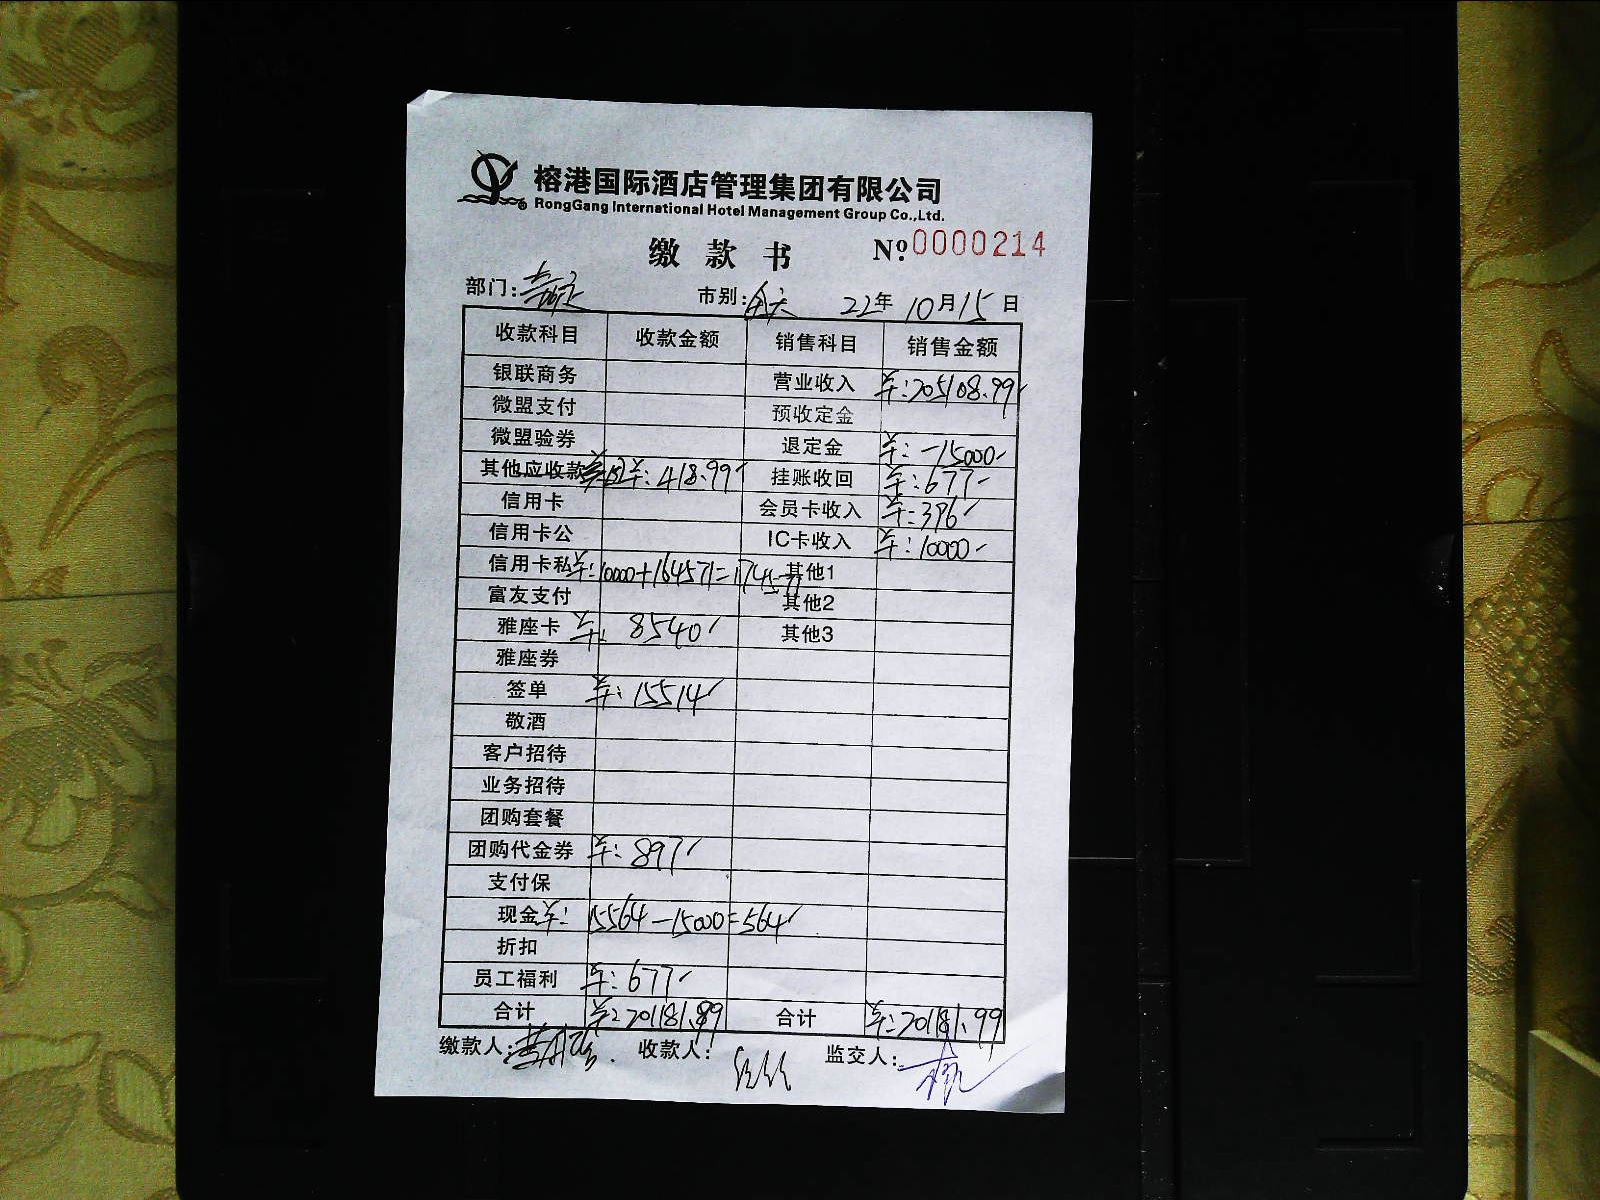 榕港国际酒店管理集团有限公司
RongGang International Hotel Management Group Co.,Ltd.
缴款书 №:0000214
部门: 市别: 22年10月15日
收款科目 收款金额 销售科目 销售金额
银联商务 营业收入 205108.99
微盟支付 预收定金
微盟验券 退定金 -15000
其他应收款 418.99 挂账收回 677
信用卡 会员卡收入 396
信用卡公 IC卡收入 10000
信用卡私 10000+164571=174571 其他1
富友支付 其他2
雅座卡 8540 其他3
雅座券
签单 15514
敬酒
客户招待
业务招待
团购套餐
团购代金券 897
支付保
现金 15564-15000=564
折扣
员工福利 677
合计 201181.99 合计 201181.99
缴款人: 收款人: 监交人: